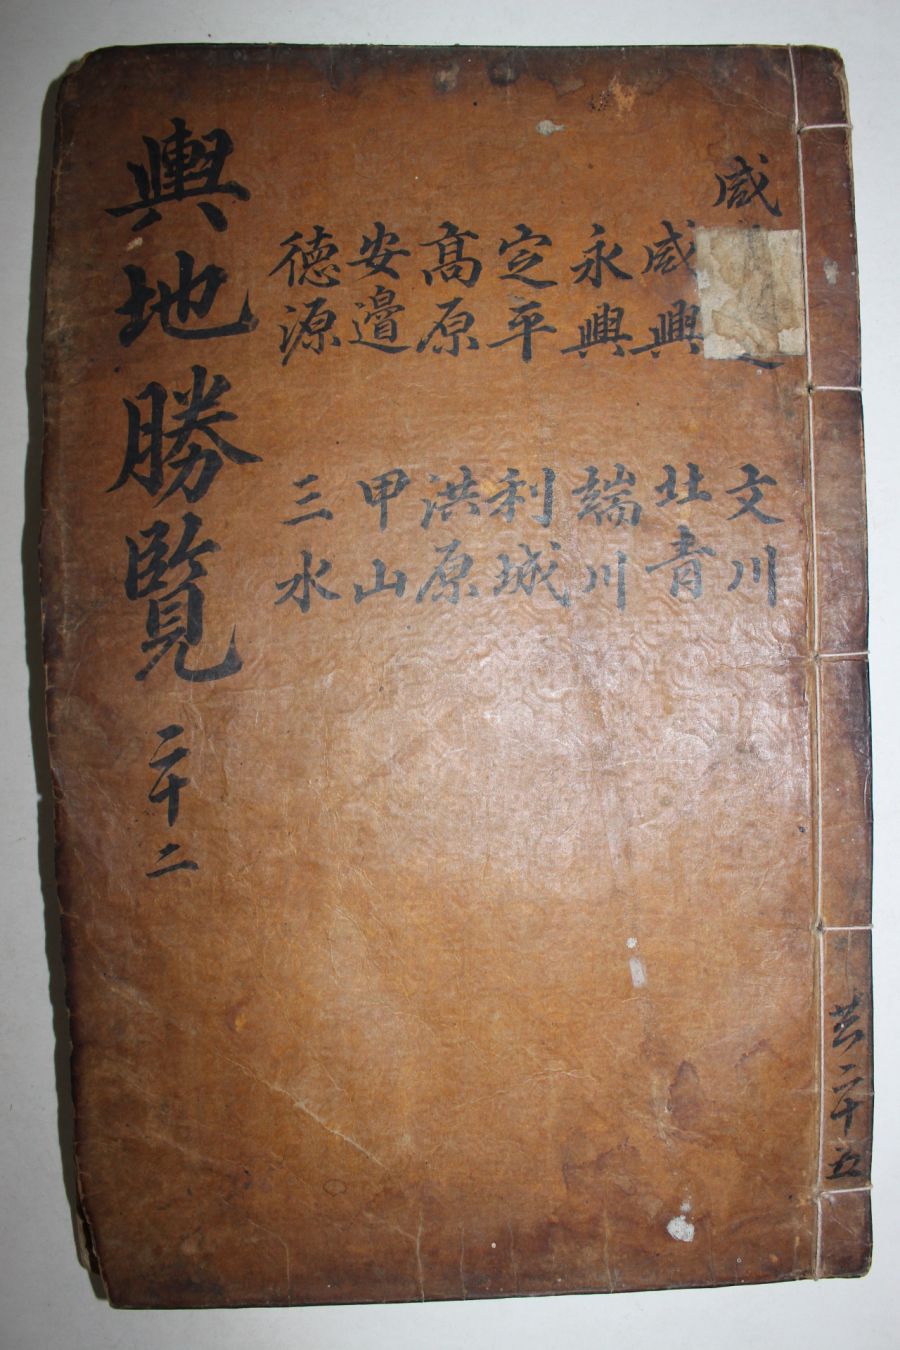 咸
咸興
永興
定平
高原
安邊
德源
文川
北青
端川
利城
洪原
甲山
三水
輿地勝覽 二十二
共二十五